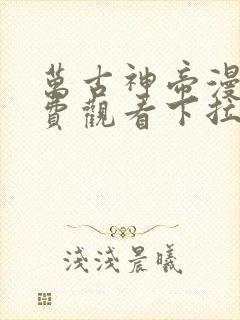 萬古神帝漫
費觀看下拉
淺淺晨曦